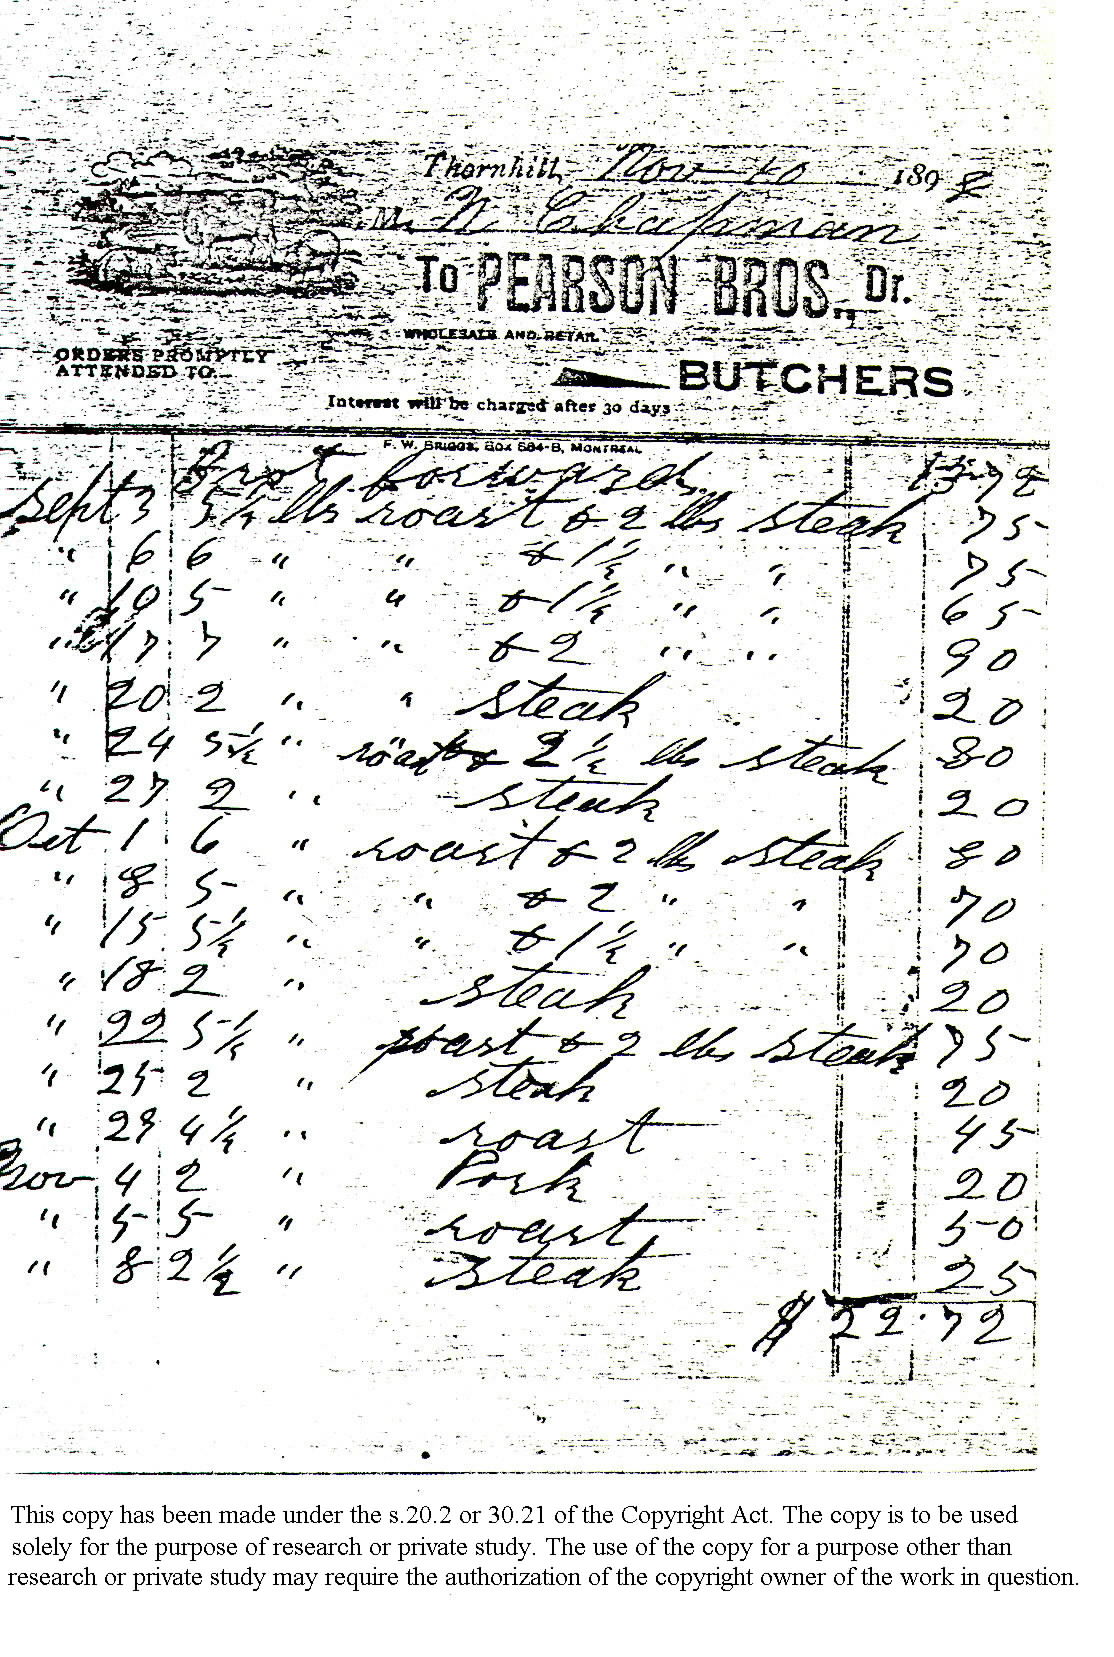 Thornhill, Nov 10 1898
M. W. Chapman
To PEARSON BROS., Dr.
WHOLESALE AND RETAIL
ORDERS PROMPTLY
ATTENDED TO.
BUTCHERS
Interest will be charged after 30 days
F. W. BRIGGS, BOX 584-B, MONTREAL
Brot forward 13.72
Sept 3 5½ lbs roast & 2 lbs steak 75
" 6 6 " " & 1½ " " 75
" 10 5 " " & 1½ " " 65
" 17 7 " " & 2 " " 90
" 20 2 " " steak 20
" 24 5½ " roast & 2½ lbs steak 80
" 27 2 " steak 20
Oct 1 6 " roast & 2 lbs steak 80
" 8 5 " " & 2 " " 70
" 15 5½ " " & 1½ " " 70
" 18 2 " steak 20
" 22 5½ " roast & 2 lbs steak 75
" 25 2 " steak 20
" 29 4½ " roast 45
Nov 4 2 " Pork 20
" 5 5 " roast 50
" 8 2½ " steak 25
$ 22.72
This copy has been made under the s.20.2 or 30.21 of the Copyright Act. The copy is to be used
solely for the purpose of research or private study. The use of the copy for a purpose other than
research or private study may require the authorization of the copyright owner of the work in question.